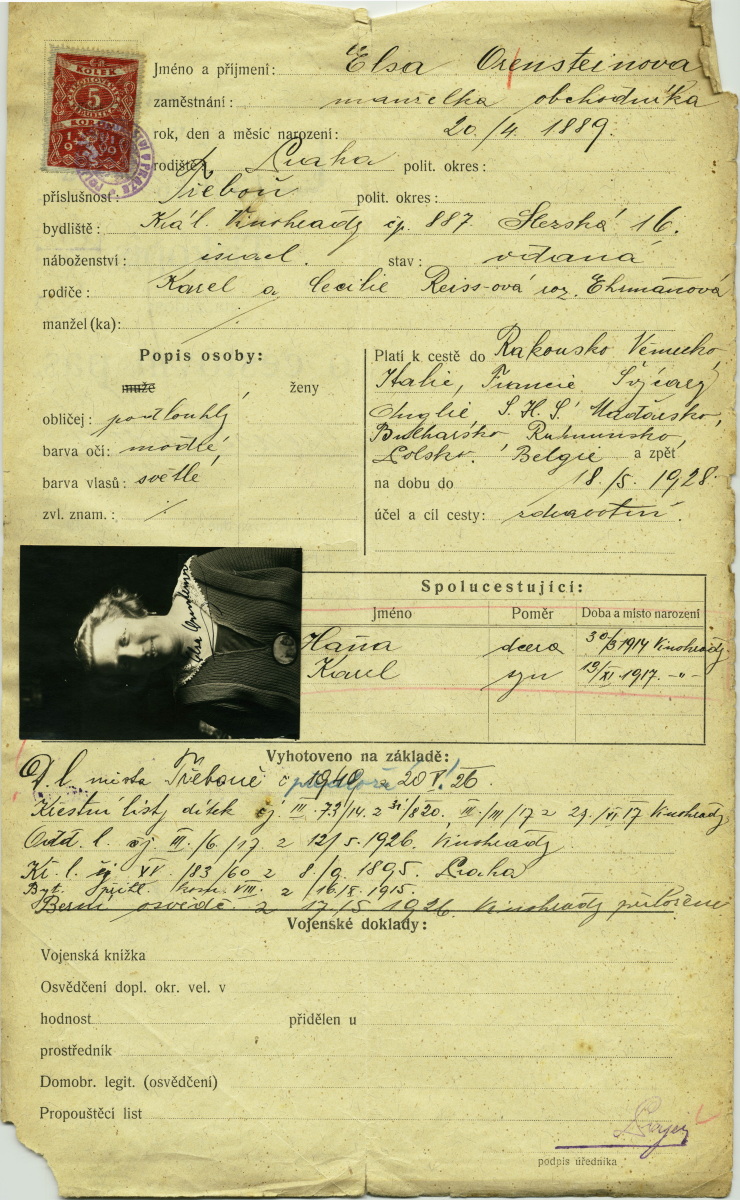 KOLEK
5
KORUN
1919
Jméno a příjmení: Elsa Orensteinova
zaměstnání: manželka obchodníka
rok, den a měsíc narození: 20./4. 1889.
rodiště: Praha polit. okres:
příslušnost: Třeboň polit. okres:
bydliště: Král. Vinohrady čp. 887. Slezská 16.
náboženství: israel. stav: vdaná
rodiče: Karel a Cecilie Reiss-ová roz. Ehrmanová
manžel (ka): ⁒
Popis osoby:
muže ženy
obličej: podlouhlý
barva očí: modré
barva vlasů: světlé
zvl. znam.: ⁒
Platí k cestě do Rakousko Německo,
Italie, Francie Švýcary
Anglie S. H. S. Maďarsko,
Bulharsko Rumunsko,
Polsko. Belgie a zpět
na dobu do 18./5. 1928.
účel a cíl cesty: zdravotní.
Spolucestující:
Jméno Poměr Doba a místo narození
Hana dcera 30/3 1914 Vinohrady
Karel syn 19/XI. 1917. -„-
Vyhotoveno na základě:
D. l. města Třeboně č 20 V. 26
Křestní listy dítek čj III. 73/14. z 31/8 20. III./17 z 29./XI 17 Vinohrady
Odd. l. čj. III./6./17 z 12/5. 1926. Vinohrady
Kř. l. čj XV. /83/60 z 8/9. 1895. Praha
Byt. kom. VIII. z /16/8. 1915.
Berní osvědč. z 17/5 1926. Vinohrady přiloženo
Vojenské doklady:
Vojenská knížka
Osvědčení dopl. okr. vel. v
hodnost přidělen u
prostředník
Domobr. legit. (osvědčení)
Propouštěcí list
podpis úředníka